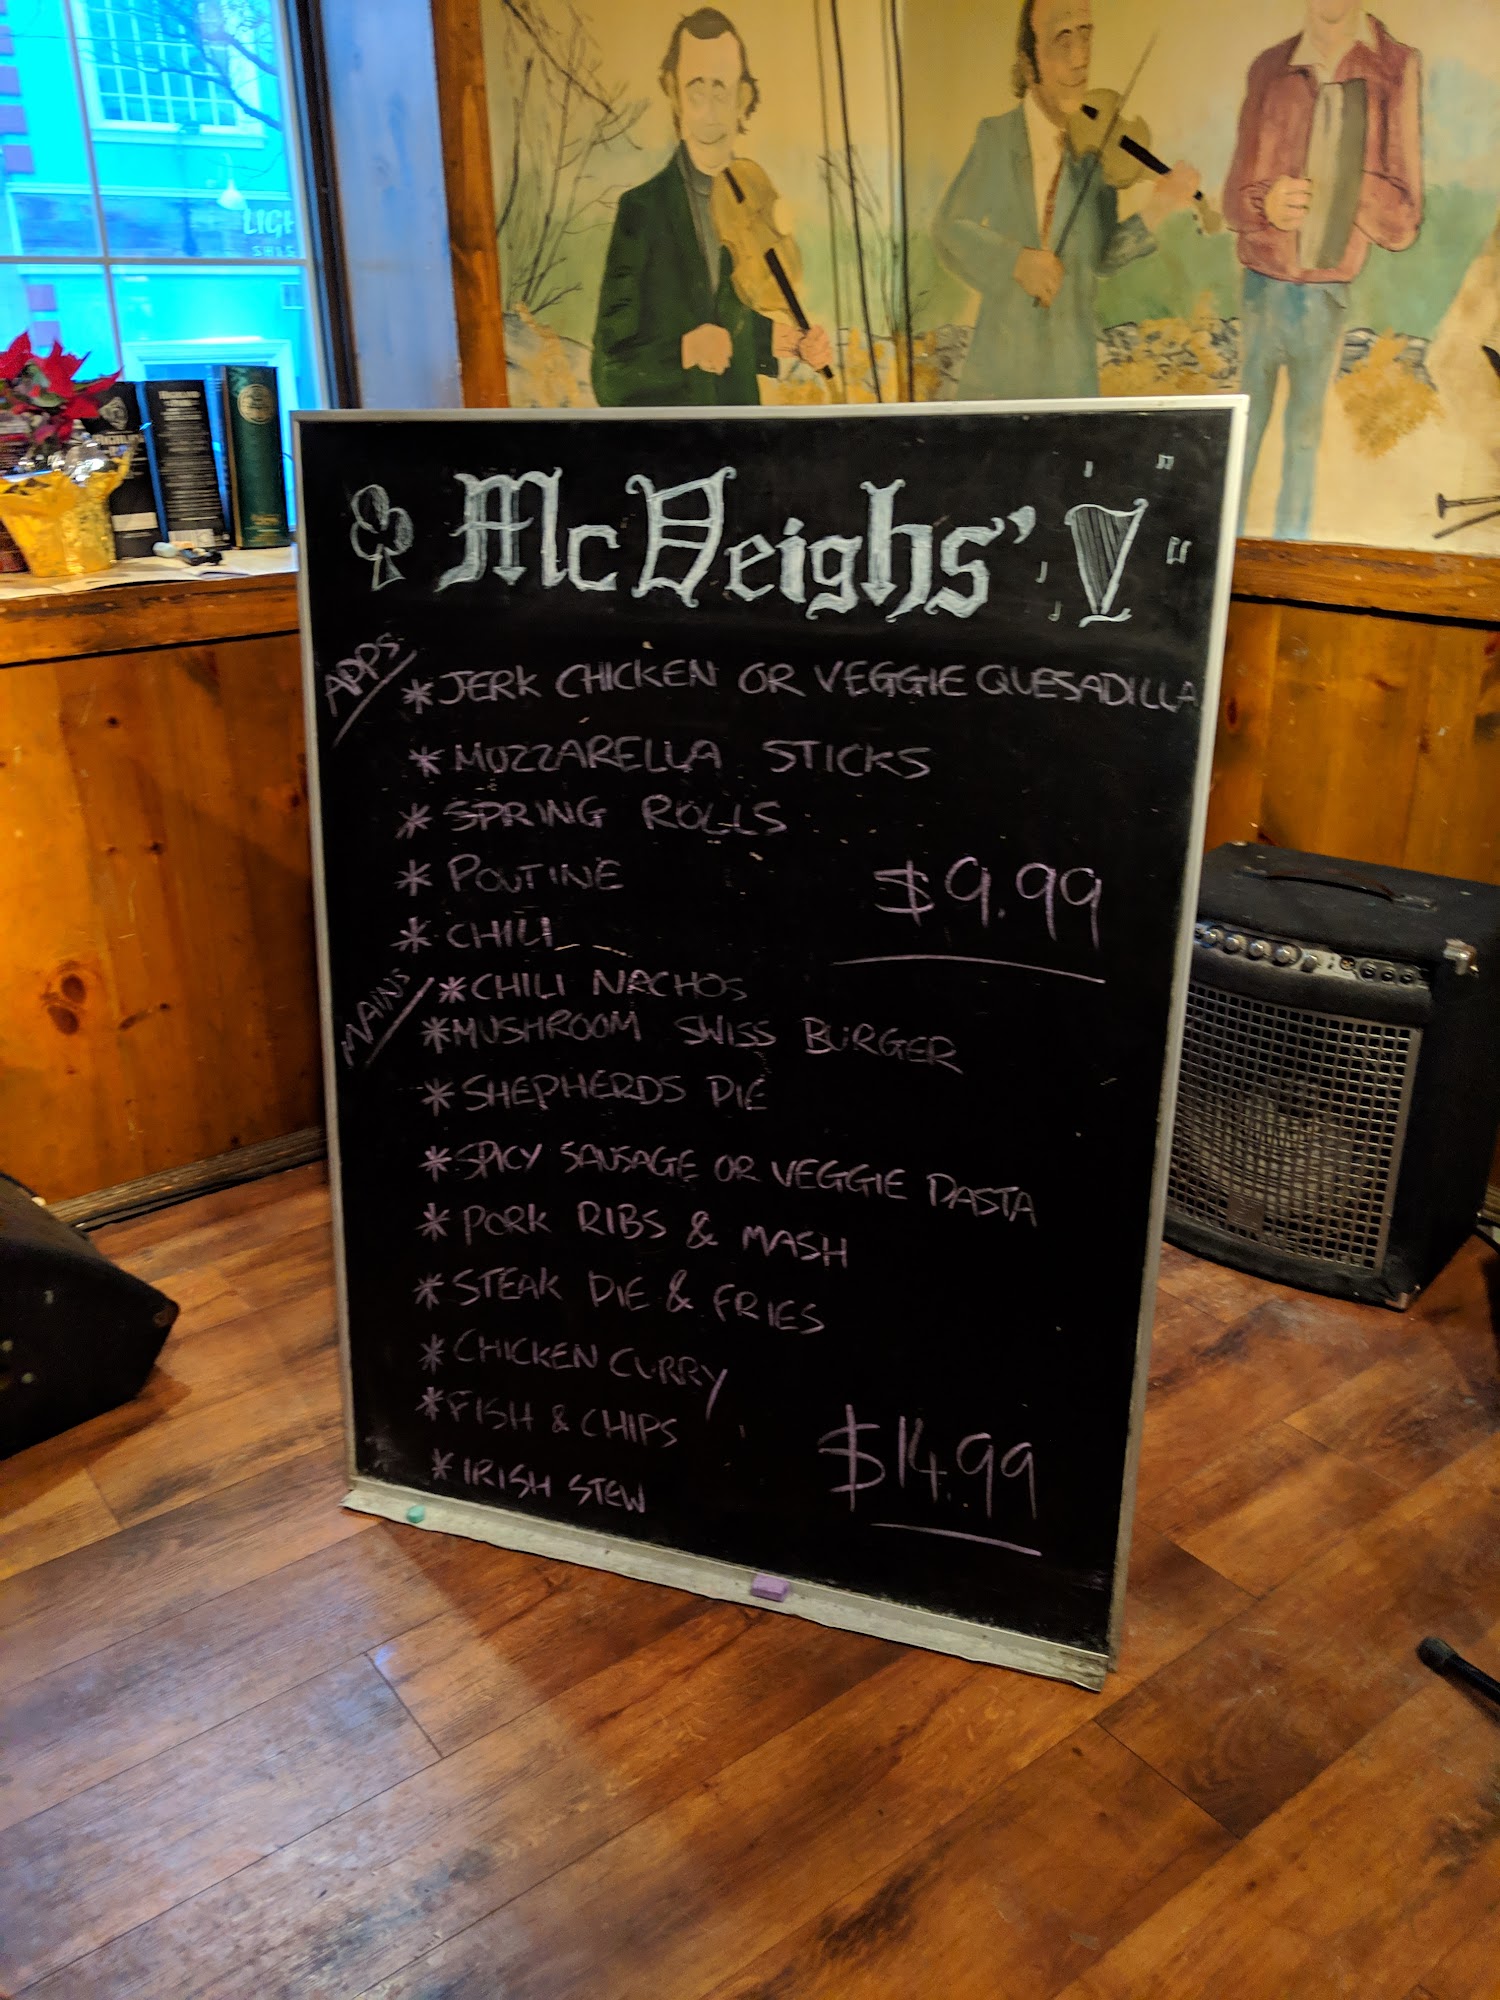 McVeighs'
APPS
* JERK CHICKEN OR VEGGIE QUESADILLA
* MUZZARELLA STICKS
* SPRING ROLLS
* POUTINE
$9.99
* CHILI
MAINS
* CHILI NACHOS
* MUSHROOM SWISS BURGER
* SHEPHERDS PIE
* SPICY SAUSAGE OR VEGGIE PASTA
* PORK RIBS & MASH
* STEAK PIE & FRIES
* CHICKEN CURRY
* FISH & CHIPS
$14.99
* IRISH STEW
LIGH